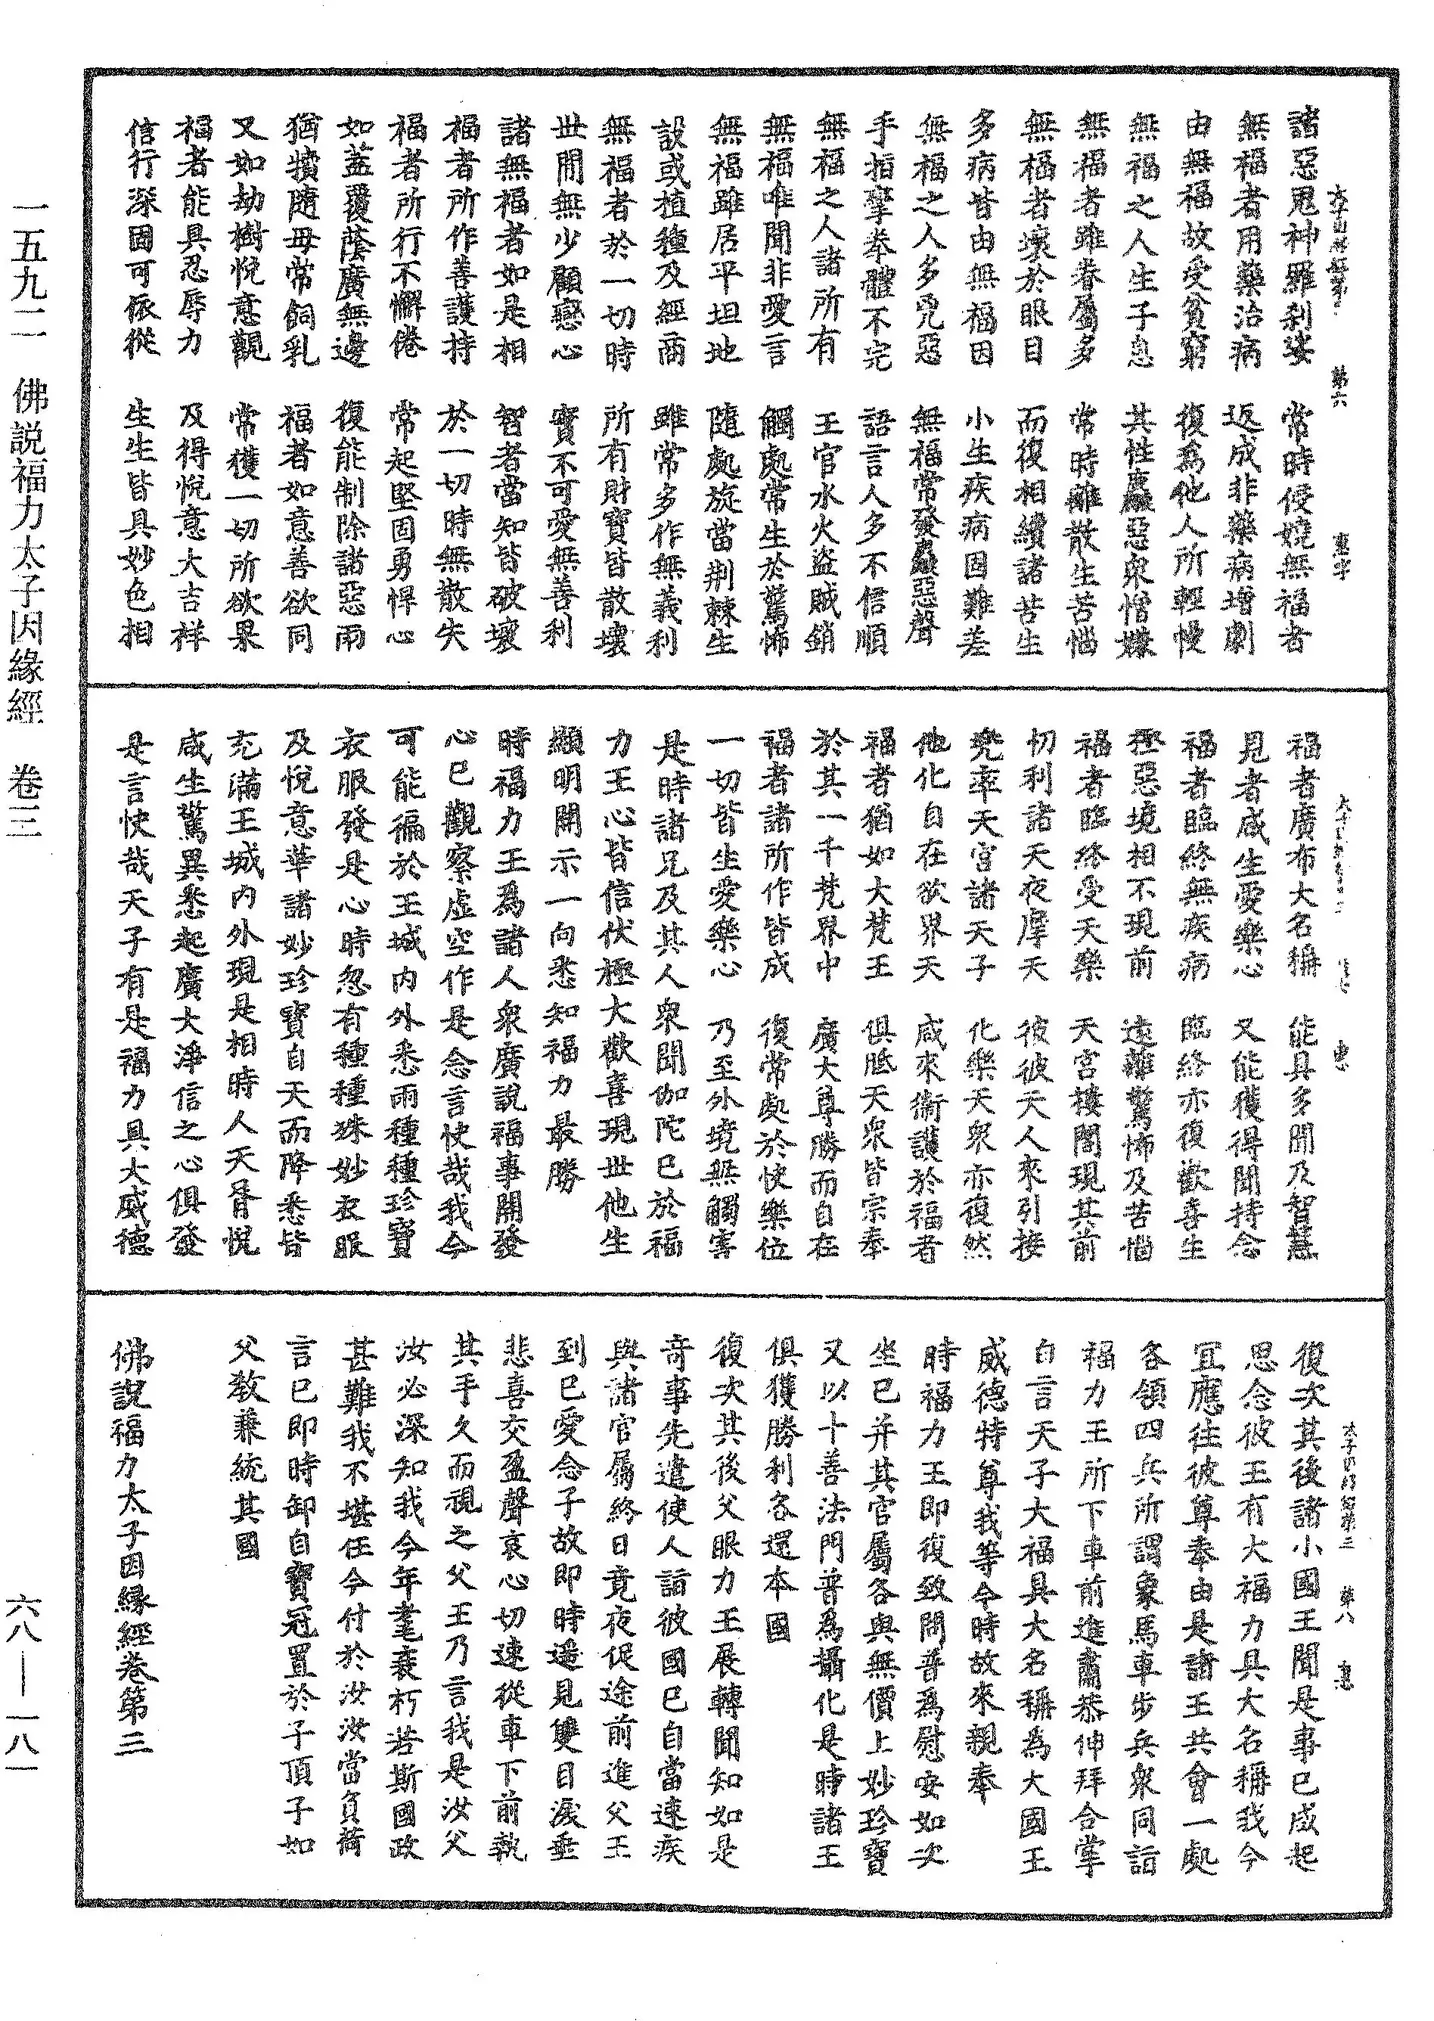 諸惡鬼神羅剎娑　常時侵嬈無福者
無福者用藥治病　返成非藥病增劇
由無福故受貧窮　復為他人所輕慢
無福之人生子息　其性麤惡眾憎嫌
無福者雖眷屬多　常時離散生苦惱
無福者壞於眼目　而復相續諸苦生
多病皆由無福因　小生疾病固難差
無福之人多兇惡　無福常發麤惡聲
手指攣拳體不完　語言人多不信順
無福之人諸所有　王官水火盜賊銷
無福唯聞非愛言　觸處常生於驚怖
無福雖居平坦地　隨處旋當荆棘生
設或植種及經商　雖常多作無義利
無福者於一切時　所有財寶皆散壞
世間無少顧戀心　實不可愛無善利
諸無福者如是相　智者當知皆破壞
福者所作善護持　於一切時無散失
福者所行不懈倦　常起堅固勇悍心
如蓋覆蔭廣無邊　復能制除諸惡雨
猶犢隨母常飼乳　福者如意善欲同
又如劫樹悅意觀　常獲一切所欲果
福者能具忍辱力　及得悅意大吉祥
信行深固可依從　生生皆具妙色相
福者廣布大名稱　能具多聞及智慧
見者咸生愛樂心　又能獲得聞持念
福者臨終無疾病　臨終亦復歡喜生
極惡境相不現前　遠離驚怖及苦惱
福者臨終受天樂　天宮樓閣現其前
忉利諸天夜摩天　彼彼天人來引接
兜率天宮諸天子　化樂天眾亦復然
他化自在欲界天　咸來衞護於福者
福者猶如大梵王　俱胝天眾皆宗奉
於其一千梵界中　廣大尊勝而自在
福者諸所作皆成　復常處於快樂位
一切皆生愛樂心　乃至外境無觸害
是時諸兄及其人眾聞伽陀已於福
力王心皆信伏極大歡喜現世他生
顯明開示一向悉知福力最勝
時福力王為諸人眾廣說福事開發
心已觀察虛空作是念言快哉我今
可能徧於王城內外悉雨種種珍寶
衣服發是心時忽有種種殊妙衣服
及悅意華諸妙珍寶自天而降悉皆
充滿王城內外現是相時人天胥悅
咸生驚異悉起廣大淨信之心俱發
是言快哉天子有是福力具大威德
復次其後諸小國王聞是事已咸起
思念彼王有大福力具大名稱我今
宜應往彼尊奉由是諸王共會一處
各領四兵所謂象馬車步兵眾同詣
福力王所下車前進肅恭伸拜合掌
白言天子大福具大名稱為大國王
威德特尊我等今時故來親奉
時福力王即復致問普為慰安如次
坐已并其官屬各與無價上妙珍寶
又以十善法門普為攝化是時諸王
俱獲勝利各還本國
復次其後父眼力王展轉聞知如是
奇事先遣使人詣彼國已自當速疾
與諸官屬終日竟夜促途前進父王
到已愛念子故即時遙見雙目淚垂
悲喜交盈聲哀心切速從車下前執
其手久而視之父王乃言我是汝父
汝必深知我今年耄衰朽若斯國政
甚難我不堪任今付於汝汝當負荷
言已即時卸自寶冠置於子頂子如
父教兼統其國
佛說福力太子因緣經卷第三
太子因緣經第三　第八
一五九二　佛説福力太子因緣經　卷三
六八—一八一